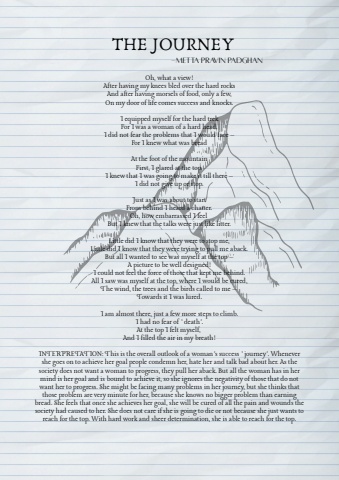 THE JOURNEY
-METTA PRAVIN PADGHAN
Oh, what a view!
After having my knees bled over the hard rocks
And after having morsels of food, only a few,
On my door of life comes success and knocks.
I equipped myself for the hard trek
For I was a woman of a hard head,
I did not fear the problems that I would face –
For I knew what was bread
At the foot of the mountain
First, I glared at the top
I knew that I was going to make it till there –
I did not give up or flop.
Just as I was about to start
From behind I heard a chatter.
Oh, how embarrassed I feel
But I knew that the talks were just like litter.
Little did I know that they were to stop me,
Little did I know that they were trying to pull me aback.
But all I wanted to see was myself at the top –
A picture to be well designed!
I could not feel the force of those that kept me behind.
All I saw was myself at the top, where I would be cured,
'The wind, the trees and the birds called to me
'Towards it I was lured.
I am almost there, just a few more steps to climb.
I had no fear of ' death'.
At the top I felt myself,
And I filled the air in my breath!
INTERPRETATION: 'This is the overall outlook of a woman's success ' journey'. Whenever
she goes on to achieve her goal people condemn her, hate her and talk bad about her. As the
society does not want a woman to progress, they pull her aback. But all the woman has in her
mind is her goal and is bound to achieve it, so she ignores the negativity of those that do not
want her to progress. She might be facing many problems in her journey, but she thinks that
those problem are very minute for her, because she knows no bigger problem than earning
bread. She feels that once she achieves her goal, she will be cured of all the pain and wounds the
society had caused to her. She does not care if she is going to die or not because she just wants to
reach for the top. With hard work and sheer determination, she is able to reach for the top.